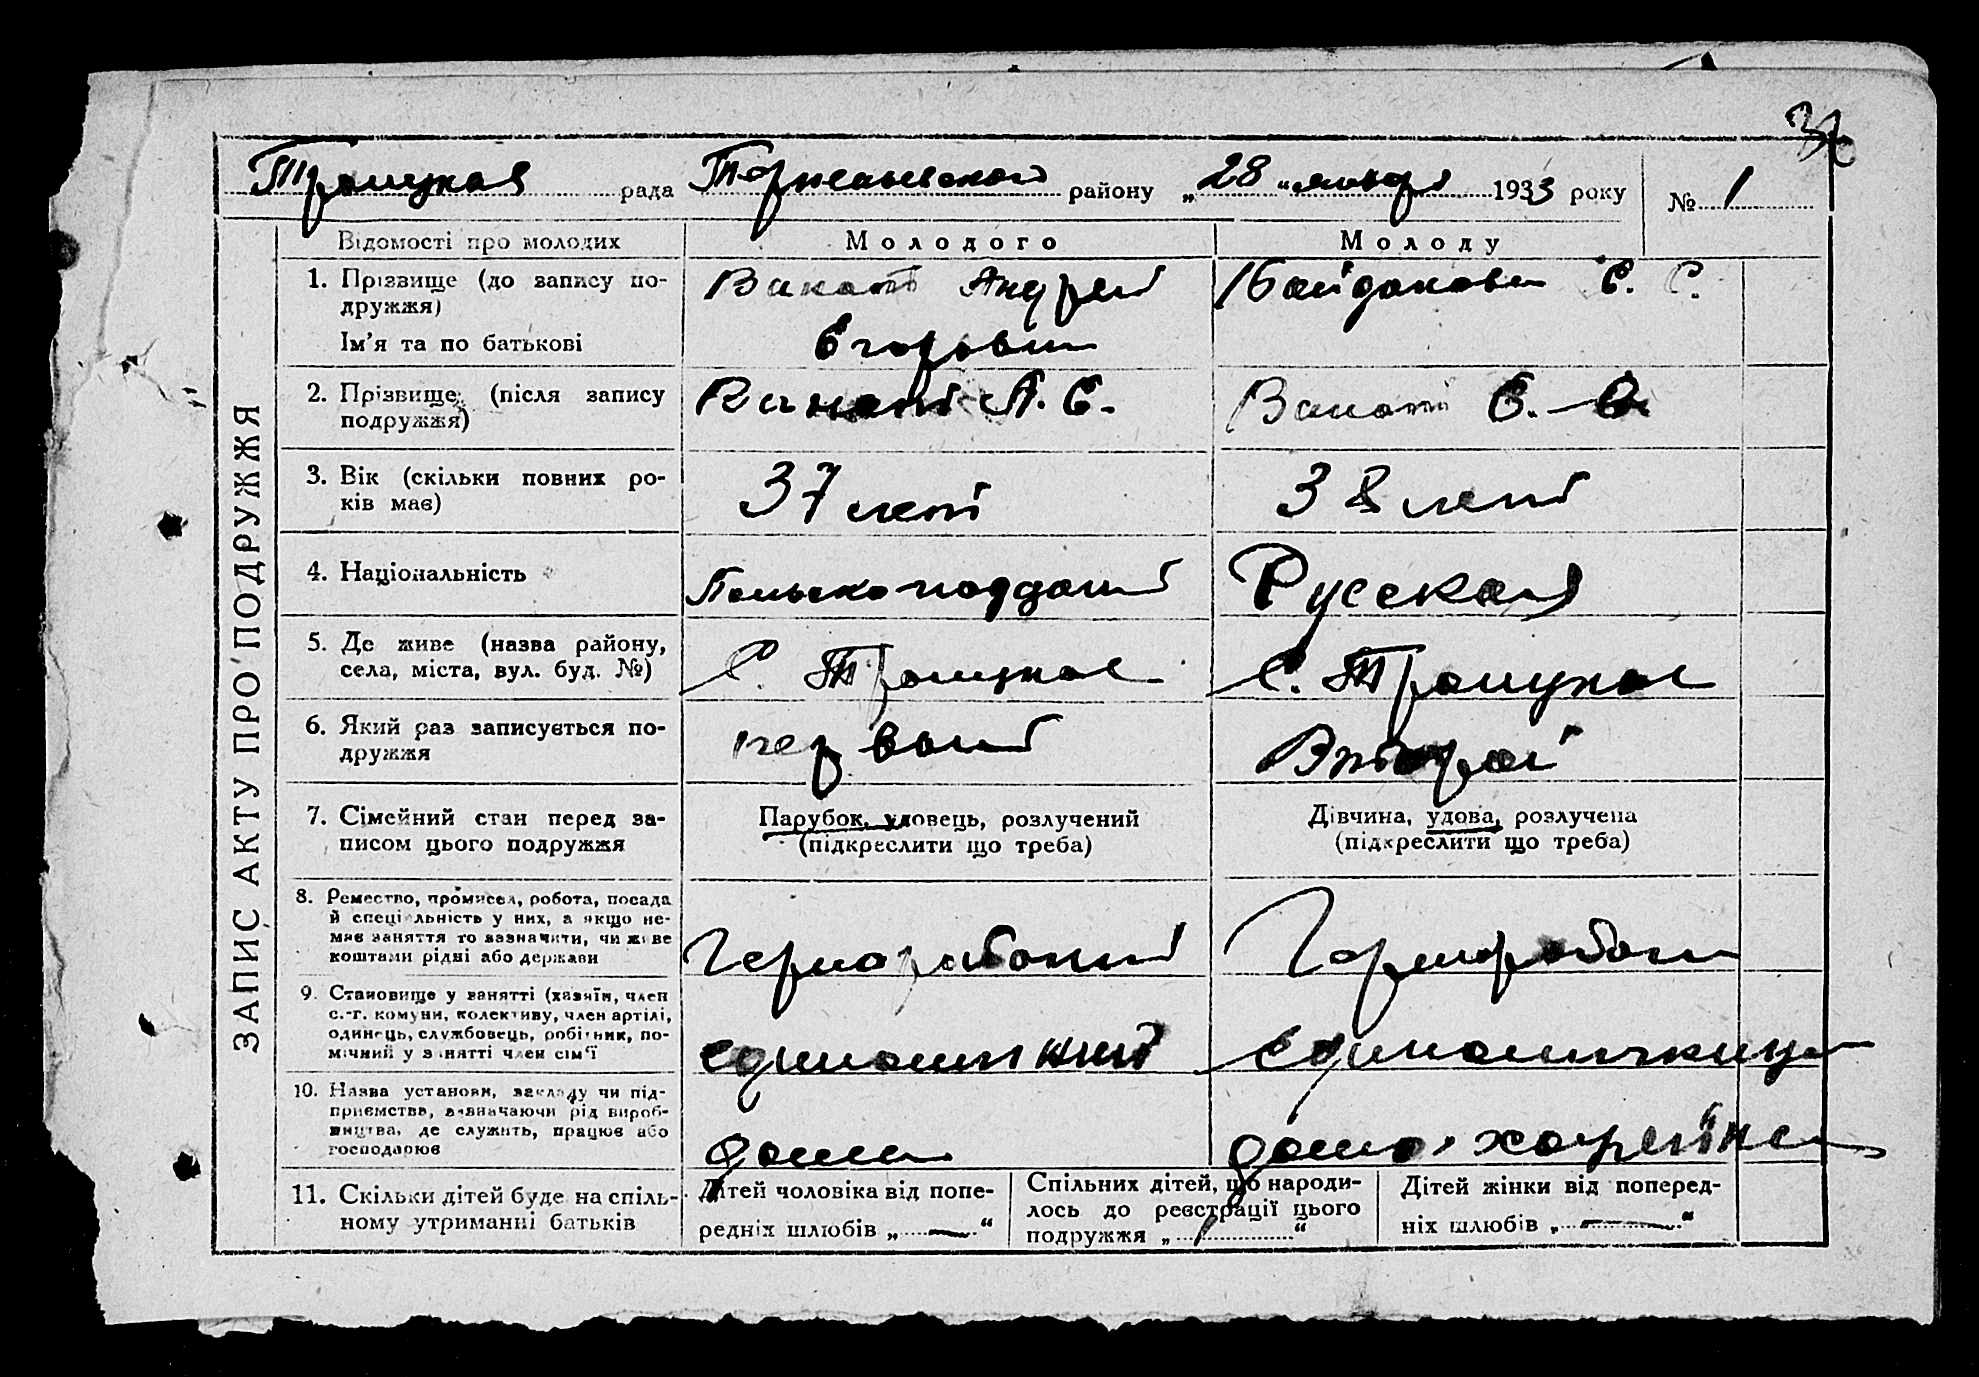 37
Троицкая рада района „28" января 1933 року № 1
ЗАПИС АКТУ ПРО ПОДРУЖЖЯ
Відомості про молодих
Молодого
Молоду
1. Прізвище (до запису по-
дружжя)
Ім'я та по батькові
Андрей
Егорович
Байдакова Е. С.
2. Прізвище (після запису
подружжя)
А. Е.
Е.
3. Вік (скільки повних ро-
ків має)
37 лет
38 лет
4. Національність
Польскоподданий
Русская
5. Де живе (назва району,
села, міста, вул. буд. №)
С. Троицкое
С. Троицкое
6. Який раз записується по-
дружжя
первый
Второй
7. Сімейний стан перед за-
писом цього подружжя
Парубок, удовець, розлучений
(підкреслити що треба)
Дівчина, удова, розлучена
(підкреслити що треба)
8. Ремество, промисел, робота, посада
й спеціяльність у них, а якщо не-
має заняття то зазначити, чи живе
коштами рідні або держави
Чернорабочий
Чернорабочая
9. Становище у занятті (хазяїн, член
с.-г. комуни, колективу, член артілі,
одинець, службовець, робітник, по-
мічний у занятті член сім'ї
единоличний
единоличница
10. Назва установи, закладу чи під-
приємства, зазначаючи рід вироб-
ництва, де служить, працює або
господарює
дома
домохозяйка
11. Скільки дітей буде на спіль-
ному утриманні батьків
Дітей чоловіка від попе-
редніх шлюбів „ — "
Спільних дітей, що народи-
лось до реєстрації цього
подружжя „ 1 "
Дітей жінки від поперед-
ніх шлюбів „ — "